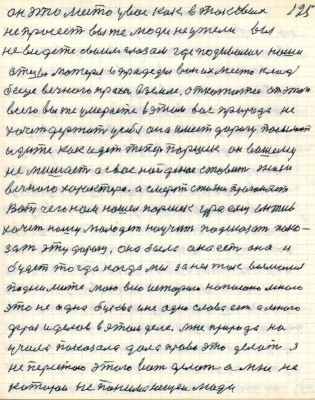 он это место у вас как в таковых 125
не просеет вы же люди неужели вы
не видете своим глазам где подевались наши
отцы матеря и прадеды в них место клад
бище вечного праха в земле, откажитеся от этого
всего вы же умераете в этом вас природа не
хочет держать у себя она имеет дорогу
идите как идет теперь паршек он вашему
не мешает а свое найденое ставит жизни
вечного характера. а смерть с жизни прогоняет
Вот чего нам нашел паршек ура ему он жив
хочет нашу молодеж научить подсказать пока-
зать эту дорогу, она была она есть она и
будет тогда когда мы за неё как возьмемся
поднимите мою всю историю написано много
это не одна буква и не одно слова есть а много
дорог и делов в этом деле, мне природа на
учила показала дала право это делать я
не перестаю этого вот делать а мне не
которые не понимающии люди